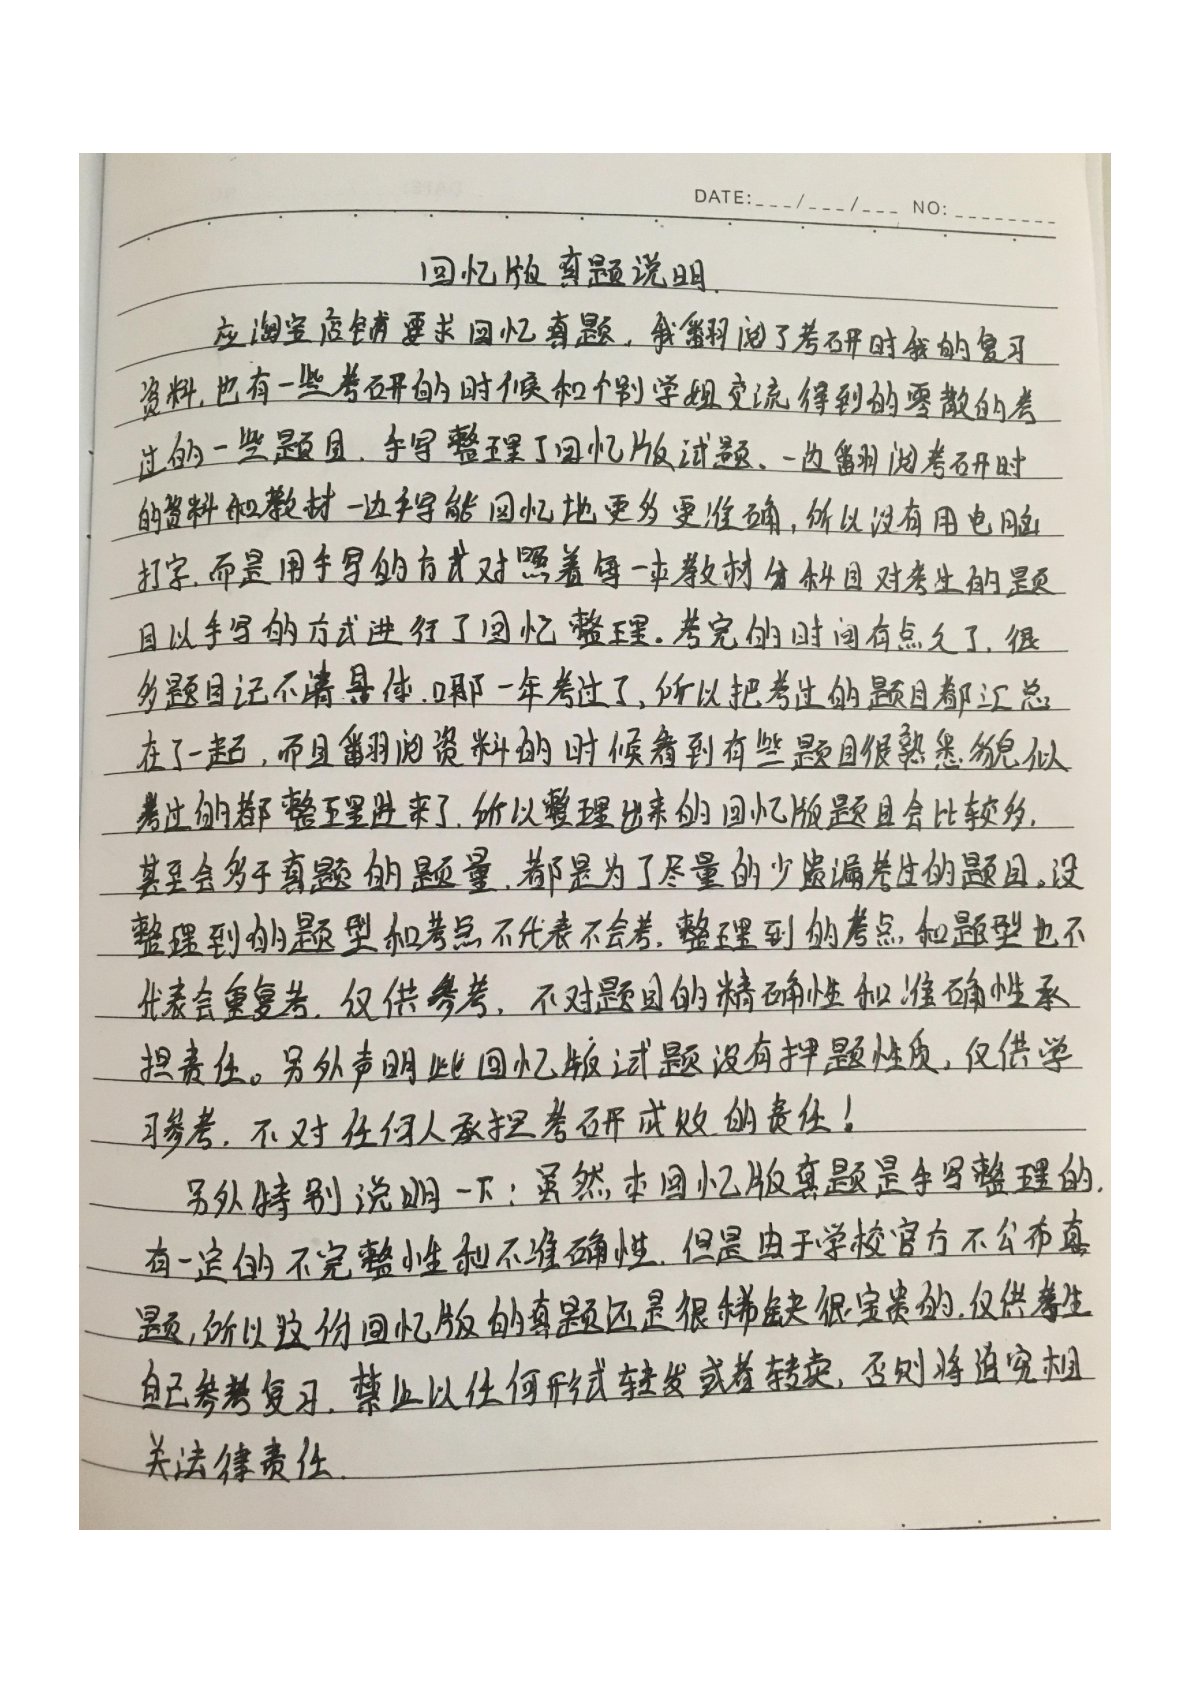 DATE:___/___/___ NO:________
回忆版真题说明.
应淘宝店铺要求回忆真题，我翻阅了考研时我的复习
资料，也有一些考研的时候和个别学姐交流得到的零散的考
过的一些题目，手写整理了回忆版试题、一边翻阅考研时
的资料和教材一边手写能回忆地更多更准确，所以没有用电脑
打字，而是用手写的方式对照着每一本教材分科目对考生的题
目以手写的方式进行了回忆整理。考完的时间有点久了，很
多题目记不清具体哪一年考过了，所以把考过的题目都汇总
在了一起，而且翻阅资料的时候看到有些题目很熟悉貌似
考过的都整理进来了，所以整理出来的回忆版题目会比较多，
甚至会多于真题的题量，都是为了尽量的少遗漏考生的题目。没
整理到的题型和考点不代表不会考，整理到的考点和题型也不
代表会重复考，仅供参考，不对题目的精确性和准确性承
担责任。另外声明此回忆版试题没有押题性质，仅供学
习参考，不对任何人承担考研成败的责任！
另外特别说明一下：虽然本回忆版真题是手写整理的，
有一定的不完整性和不准确性，但是由于学校官方不公布真
题，所以这份回忆版的真题还是很稀缺很宝贵的，仅供考生
自己参考复习，禁止以任何形式转发或者转卖，否则将追究相
关法律责任.